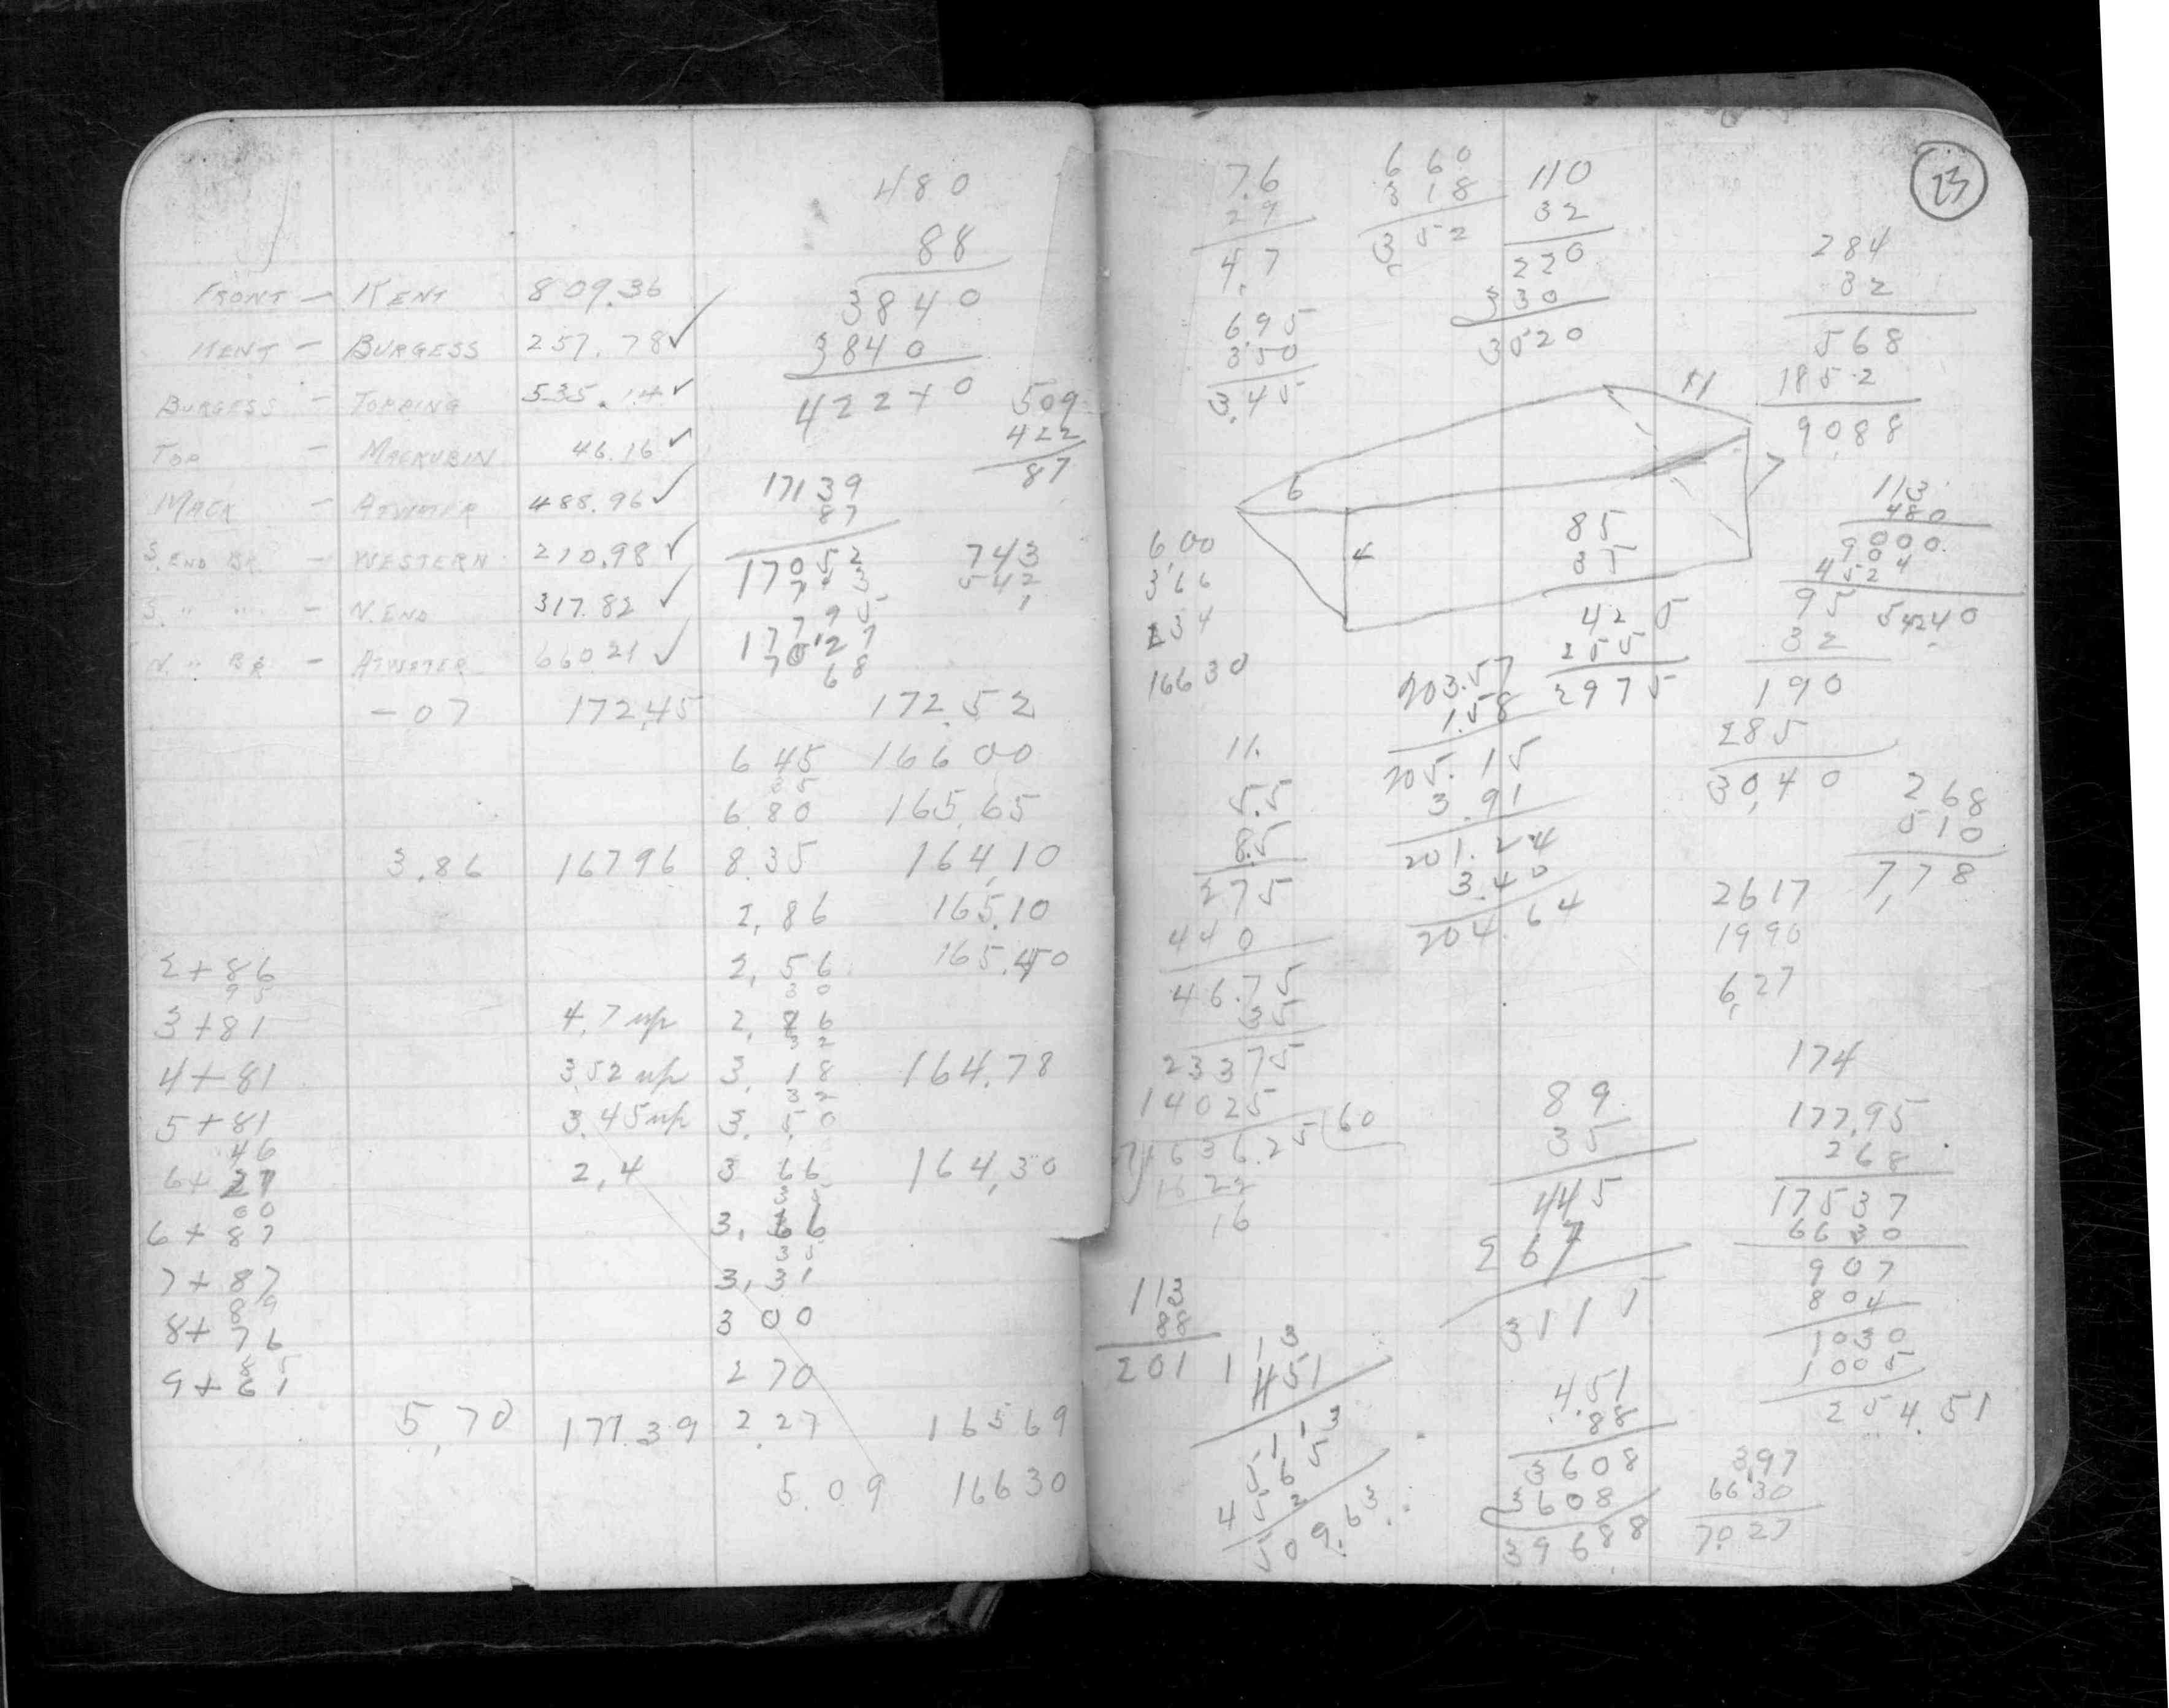 480
88
3840
3840
42240
FRONT - KENT 809.36
KENT - BURGESS 257.78 ✓
BURGESS - TOPPING 535.14 ✓
TOP - MACKUBIN 46.16 ✓
MACK - ATWATER 488.96 ✓
S. END BR. - WESTERN 210.98 ✓
S. " " - N. END 317.82 ✓
N. " BR - ATWATER 660.21 ✓
509
422
87
17139
87
17052
743
542
1
-07 172.45 172.52
6 45 166 00
35
6 80 165.65
3.86 167 96 8.35 164.10
2.86 165.10
2+86 2.56 165.40
95 30
3+81 4.7 up 2.86
32
4+81 3.52 up 3.18 164.78
32
5+81 3.45 up 3.50
46
6+27 2.4 3 66 164.30
00
6+87 3.66
35
7+87 3.31
89
8+76 3 00
85
9+61 2 70
5.70 171.39 2.27 165 69
5.09 166 30
23
7.6
29
4.7
6.95
350
3.45
6 60
3 18
3 52
110
32
220
330
3520
284
32
568
852
9088
11
6
4
7
6.00
366
234
166 30
85
35
425
255
2975
113
480
9000
904
452
54240
95
32
190
285
30,40
203.57
1.58
205.15
3.91
201.24
3.40
204.64
11.
5.5
8.5
275
440
46.75
35
23375
14025
1636.25
60
1622
16
268
510
7,78
2617
1990
6,27
174
177.95
268
17537
6630
907
804
1030
1005
254.51
89
35
445
267
3115
113
88
201
113
451
113
565
452
509.63
4.51
88
3608
3608
39688
3.97
66 30
70.27